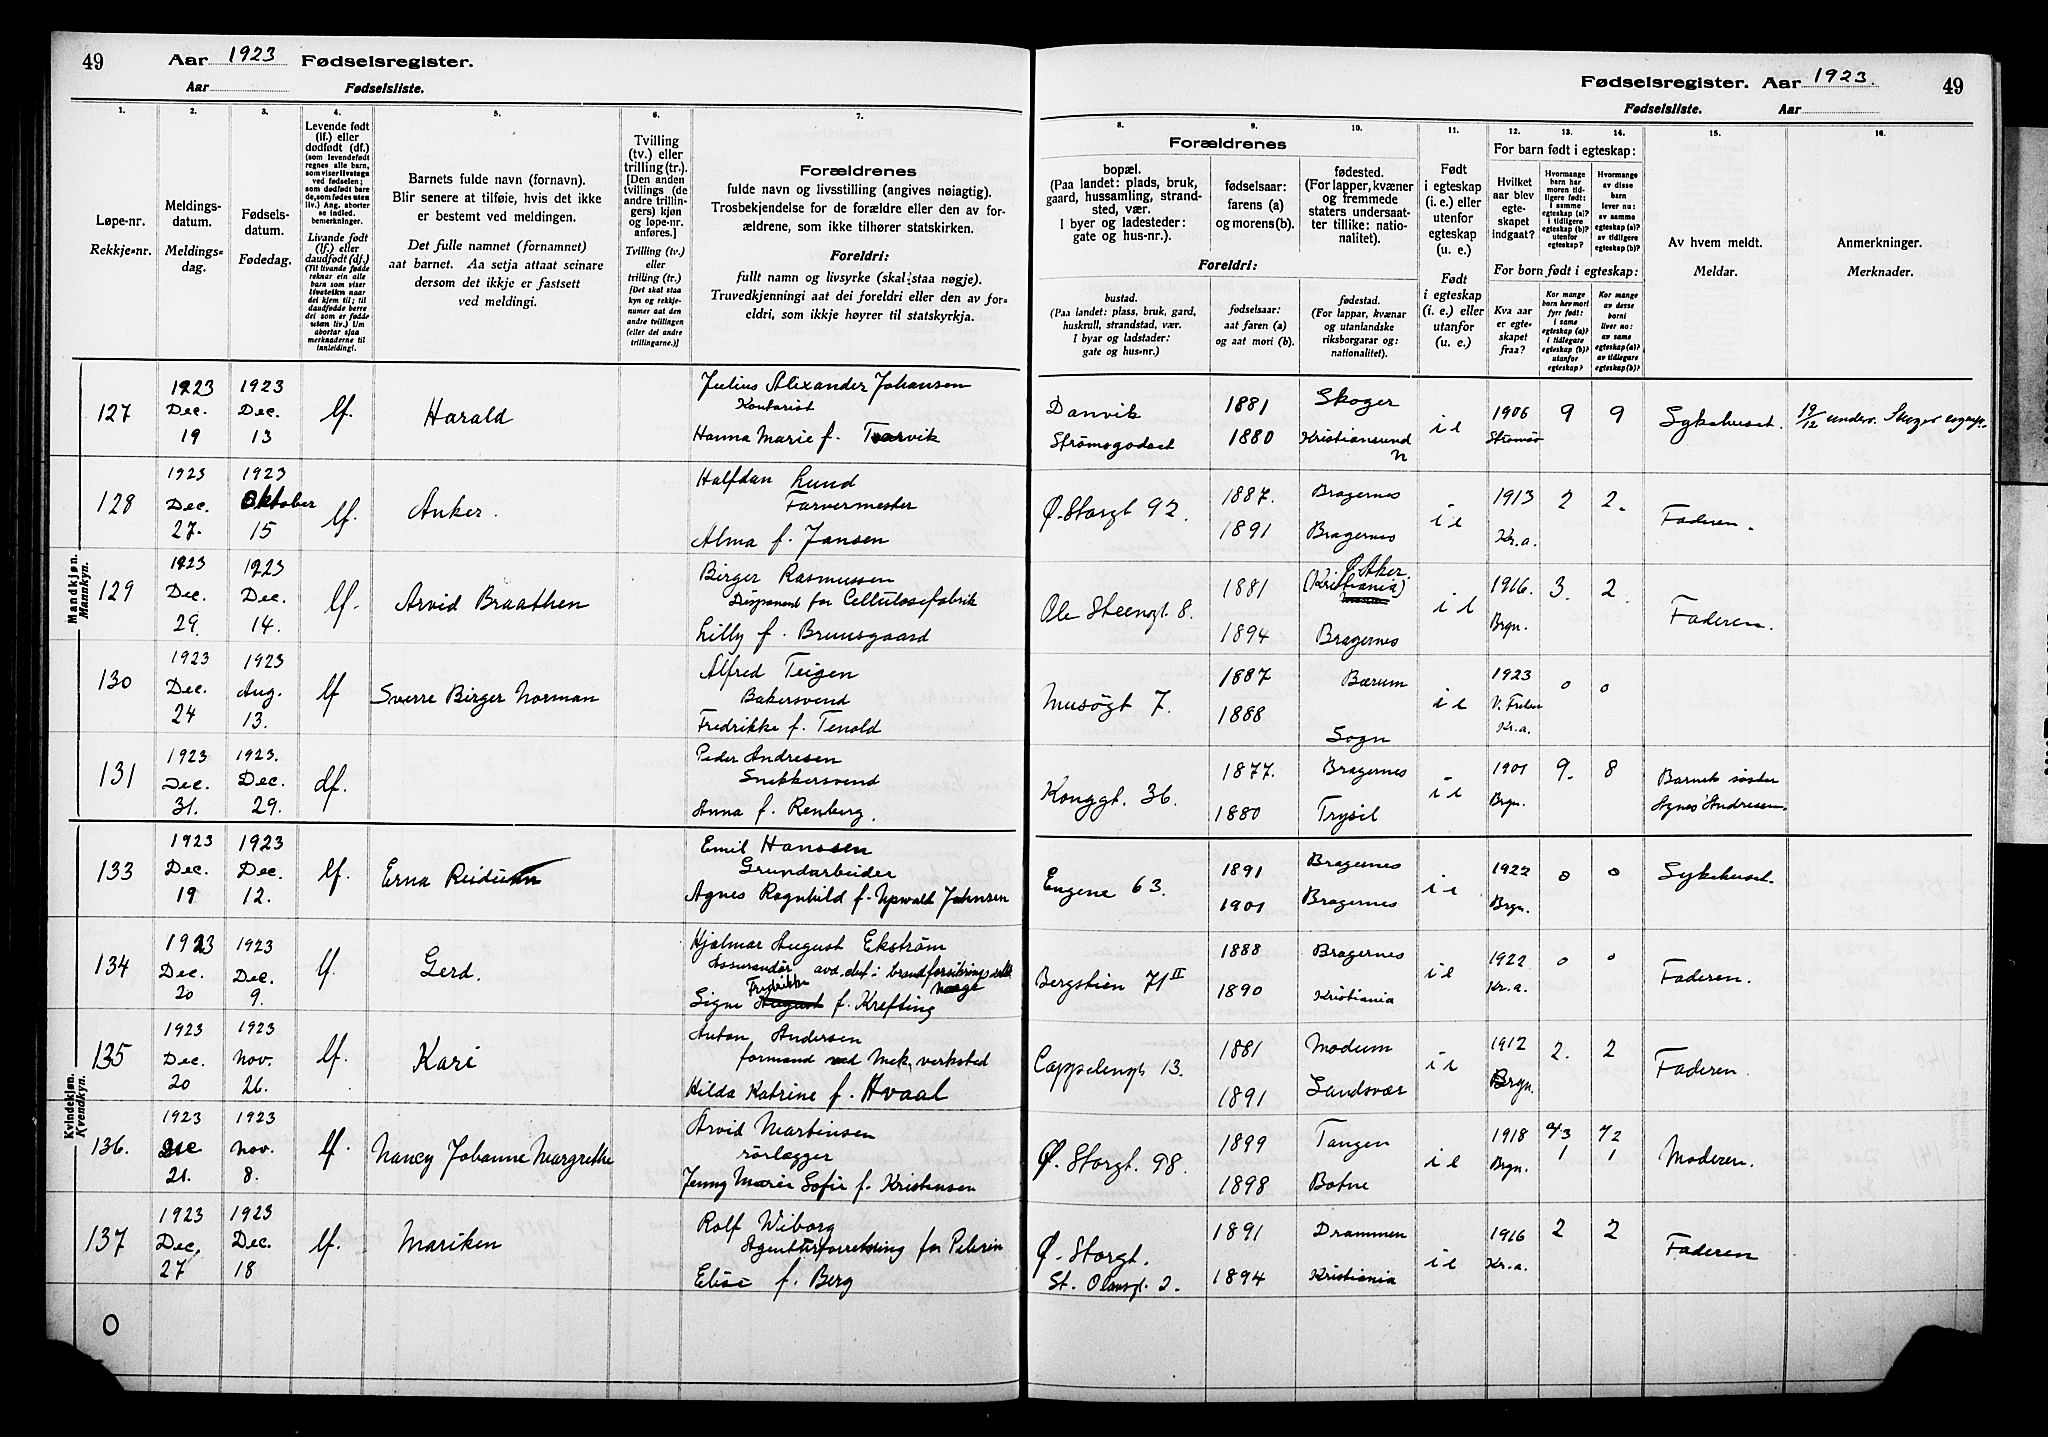 49 Aar 1923 Fødselsregister.
Aar Fødselsliste.
Fødselsregister. Aar 1923. 49
Fødselsliste. Aar
1. 2. 3. 4. 5. 6. 7.
8. 9. 10. 11. 12. 13. 14. 15. 16.
Løpe-nr.
Rekkje-nr.
Meldings-
datum.
Meldings-
dag.
Fødsels-
datum.
Fødedag.
Levende født
(lf.) eller
dødfødt (df.)
(som levendefødt
regnes alle barn,
som viser livstegn
ved fødselen;
som dødfødt bare
de, som fødes uten
liv.) Ang. aborter
se indled.
bemerkninger.
Livande født
(lf.) eller
daudfødt (df.)
(Til livande fødde
reknar ein alle
barn som viser
livsteikn naar
dei kjem til; til
daudfødde berre
dei som er fødde
utan liv.) Um
abortar sjaa
merknaderne til
innleiding!.
Barnets fulde navn (fornavn).
Blir senere at tilføie, hvis det ikke
er bestemt ved meldingen.
Det fulle namnet (fornamnet)
aat barnet. Aa setja attaat seinare
dersom det ikkje er fastsett
ved meldingi.
Tvilling
(tv.) eller
trilling (tr.)
[Den anden
tvillings (de
andre trillin-
gers) kjøn
og løpe-nr.
anføres.]
Tvilling (tv.)
eller
trilling (tr.)
[Det skal staa
kyn og rekkje-
numer aat den
andre tvillingen
(eller dei andre
trillingarne.)]
Forældrenes
fulde navn og livsstilling (angives nøiagtig).
Trosbekjendelse for de forældre eller den av for-
ældrene, som ikke tilhører statskirken.
Foreldri:
fullt namn og livsyrke (skal staa nøgje).
Truvedkjenningi aat dei foreldri eller den av for-
eldri, som ikkje høyrer til statskyrkja.
Forældrenes
bopæl.
(Paa landet: plads, bruk,
gaard, hussamling, strand-
sted, vær.
I byer og ladesteder:
gate og hus-nr.).
fødselsaar:
farens (a)
og morens (b).
fødested.
(For lapper, kvæner
og fremmede
staters undersaat-
ter tillike: natio-
nalitet).
Foreldri:
bustad.
(Paa landet: plass, bruk, gard,
huskrull, strandstad, vær.
I byar og ladstader:
gate og hus-nr.)
fødselsaar:
aat faren (a)
og aat mori (b).
fødestad.
(For lappar, kvænar
og utanlandske
riksborgarar og:
nationalitet).
Født
i egteskap
(i. e.) eller
utenfor
egteskap
(u. e.)
Født
i egteskap
(i. e.) eller
utanfor
(u. e.)
For barn født i egteskap:
Hvilket
aar blev
egte-
skapet
indgaat?
Hvormange
barn har
moren tid-
ligere født:
i samme
egteskap (a)?
i tidligere
egteskap (b)?
utenfor
egteskap?
Hvormange
av disse
barn
lever nu:
av samme
egteskap (a)?
av tidligere
egteskap (b)?
For born født i egteskap:
Kva aar
er egte-
skapet
fraa?
Kor mange
born hev mori
fyrr født:
i same
egteskap (a)?
i tidlegare
egteskap (b)?
utanfor
egteskap?
Kor mange
av desse
borni
liver no:
av same
egteskap (a)?
av tidlegare
egteskap (b)?
Av hvem meldt.
Meldar.
Anmerkninger.
Merknader.
Mandkjøn.
Mannkyn.
127 1923 Dec. 19 1923 Dec. 13 lf. Harald
Julius Alexander Johansen
Kontorist
Hanna Marie f. Torvik
Danvik Strømsgodset 1881 1880 Skoger Kristiansund N i e 1906 Strømsø 9 9 Sykehuset. 19/12 underr. Skoger
128 1923 Dec. 27. 1923 Oktober 15 lf. Anker.
Halfdan Lund
Farvermester
Alma f. Jansen
Ø. Storgt 92. 1887. 1891 Bragernes Bragernes i e 1913 Kr.a. 2 2. Faderen.
129 1923 Dec. 29. 1923 Dec. 14. lf. Arvid Braathen
Birger Rasmussen
Disponent for Cellulosefabrik
Lilly f. Bruusgaard
Ole Steensgt 8. 1881 1894 Ø. Aker. (Kristiania) Bragernes i e 1916. Brgn. 3. 2. Faderen.
130 1923 Dec. 24 1923 Aug. 13. lf Sverre Birger Norman
Alfred Teigen
Bakersvend
Fredrikke f. Tenold
Musøgt 7. 1887 1888 Bærum Sogn i e 1923 V. Frelser Kr.a. 0 0
131 1923 Dec. 31. 1923. Dec. 29. df.
Peder Andresen
Snekkersvend
Anna f. Renberg.
Konggt. 36. 1877. 1880 Bragernes Trysil i e 1901 Brgn. 9. 8 Barnets søster Agnes Andresen.
Kvindekjøn.
Kvendkyn.
133 1923 Dec. 19 1923 Dec. 12. lf. Erna Reidun
Emil Hanssen
Grundarbeider
Agnes Ragnhild f. Johnsen
Engene 63. 1891 1901 Bragernes Bragernes i e 1922 Brgn. 0 0 Sykehuset.
134 1923 Dec. 20 1923 Dec. 9. lf. Gerd.
Hjalmar August Ekstrøm
Assurandør avd. chef i brandforsikringsselsk Norge
Signe Fredrikke August f. Krefting
Bergstien 71 II 1888 1890 Bragernes Kristiania i e 1922 Kr.a. 0 0 Faderen.
135 1923 Dec. 20 1923 Nov. 26. lf. Kari
Anton Andersen
formand ved Mek. verksted
Hilda Katrine f. Hvaal
Cappelensgt 13. 1881 1891 Modum Sandsvær i e 1912 Brgn. 2. 2 Faderen.
136. 1923 Dec 21. 1923 Nov. 8. lf. Nancy Johanne Margrethe
Arvid Martinsen
rörlægger
Jenny Marie Sofie f. Kristensen
Ø. Storgt. 98. 1899 1898 Tangen Botne i e 1918 Brgn. 3 1 2 1 Moderen.
137 1923 Dec. 27 1923 Dec. 18 lf. Mariken
Rolf Wiborg
Agenturforretning for
Elise f. Berg
Ø. Storgt. St. Olavsgt. 2. 1891 1894 Drammen Kristiania i e 1916 Kr.a. 2 2 Faderen
0